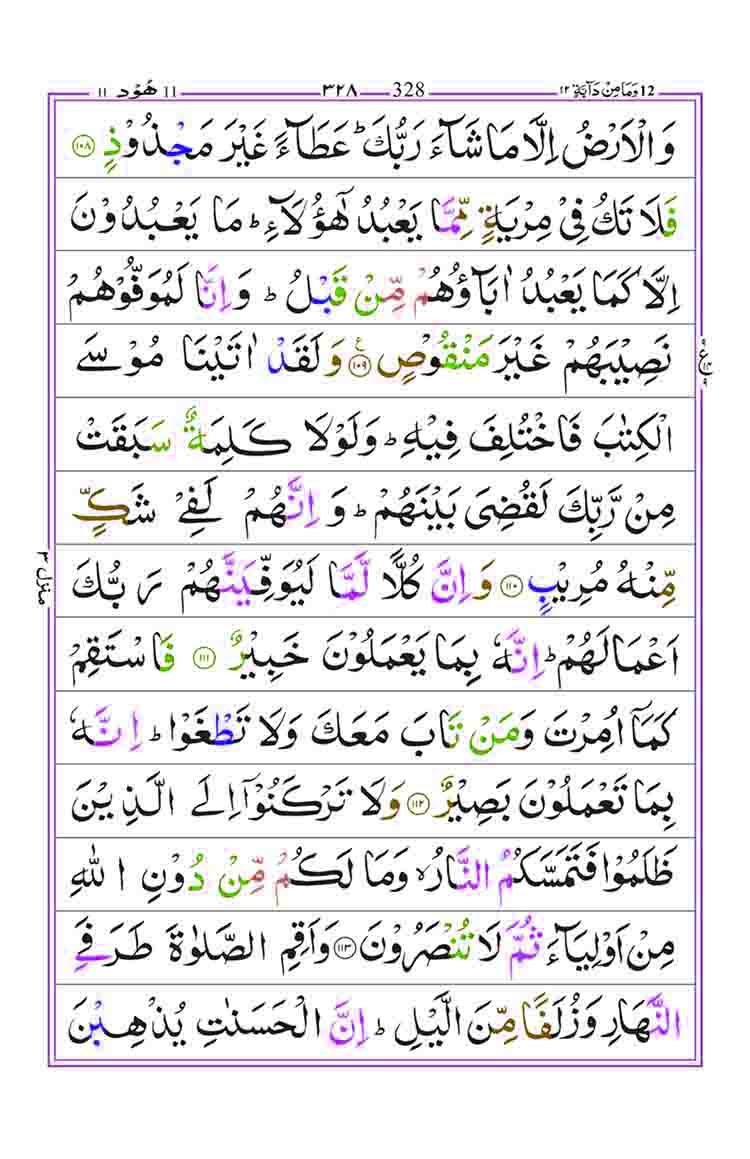 12 وَمَا مِنْ دَآبَّةٍ ١٢ 328 ٣٢٨ 11 هُوْد ١١
وَالْاَرْضُ اِلَّا مَا شَآءَ رَبُّكَ ؕ عَطَآءً غَیْرَ مَجْذُوْذٍ ۝۱۰۸
فَلَا تَكُ فِیْ مِرْیَةٍ مِّمَّا یَعْبُدُ هٰۤؤُلَآءِ ؕ مَا یَعْبُدُوْنَ
اِلَّا كَمَا یَعْبُدُ اٰبَآؤُهُمْ مِّنْ قَبْلُ ؕ وَ اِنَّا لَمُوَفُّوْهُمْ
نَصِیْبَهُمْ غَیْرَ مَنْقُوْصٍ ۝۱۰۹ ع وَلَقَدْ اٰتَیْنَا مُوْسَے
الْكِتٰبَ فَاخْتُلِفَ فِیْهِ ؕ وَلَوْلَا كَلِمَةٌ سَبَقَتْ
مِنْ رَّبِّكَ لَقُضِیَ بَیْنَهُمْ ؕ وَ اِنَّهُمْ لَفِیْ شَكٍّ
مِّنْهُ مُرِیْبٍ ۝۱۱۰ وَ اِنَّ كُلًّا لَّمَّا لَیُوَفِّیَنَّهُمْ رَبُّكَ
اَعْمَالَهُمْ ؕ اِنَّهٗ بِمَا یَعْمَلُوْنَ خَبِیْرٌ ۝۱۱۱ فَاسْتَقِمْ
كَمَاۤ اُمِرْتَ وَمَنْ تَابَ مَعَكَ وَلَا تَطْغَوْا ؕ اِنَّهٗ
بِمَا تَعْمَلُوْنَ بَصِیْرٌ ۝۱۱۲ وَلَا تَرْكَنُوْۤا اِلَی الَّذِیْنَ
ظَلَمُوْا فَتَمَسَّكُمُ النَّارُ ۙ وَمَا لَكُمْ مِّنْ دُوْنِ اللّٰهِ
مِنْ اَوْلِیَآءَ ثُمَّ لَا تُنْصَرُوْنَ ۝۱۱۳ وَاَقِمِ الصَّلٰوةَ طَرَفَیِ
النَّهَارِ وَزُلَفًا مِّنَ الَّیْلِ ؕ اِنَّ الْحَسَنٰتِ یُذْهِبْنَ
منزل ۳